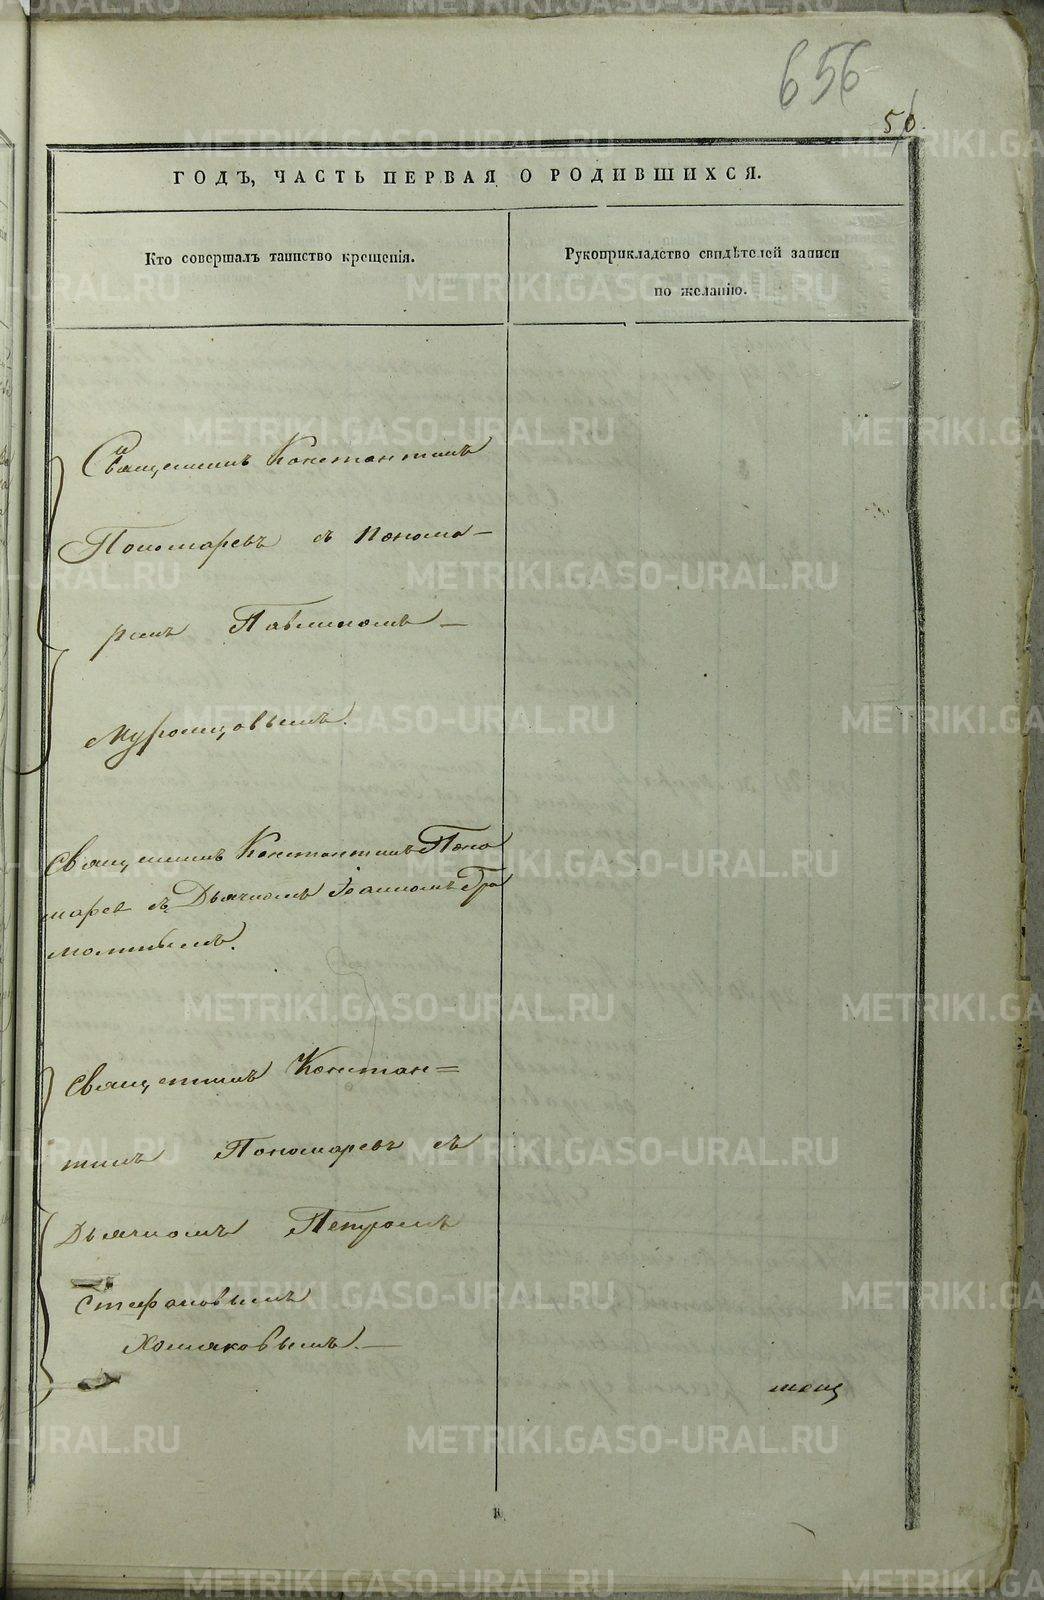 656
56.
ГОДЪ, ЧАСТЬ ПЕРВАЯ О РОДИВШИХСЯ.
Кто совершалъ таинство крещенія.
Рукоприкладство свидѣтелей записи
по желанію.
Священникъ Константинъ
Пономаревъ съ понома-
ремъ Павлиномъ
Муромцовымъ.
Священникъ Константинъ Поно
марев съ Дьячкомъ Іоанномъ
Священникъ Констан=
тинъ Пономаревъ съ
Дьячкомъ Петромъ
Стефановымъ
Хомяковымъ.
METRIKI.GASO-URAL.RU